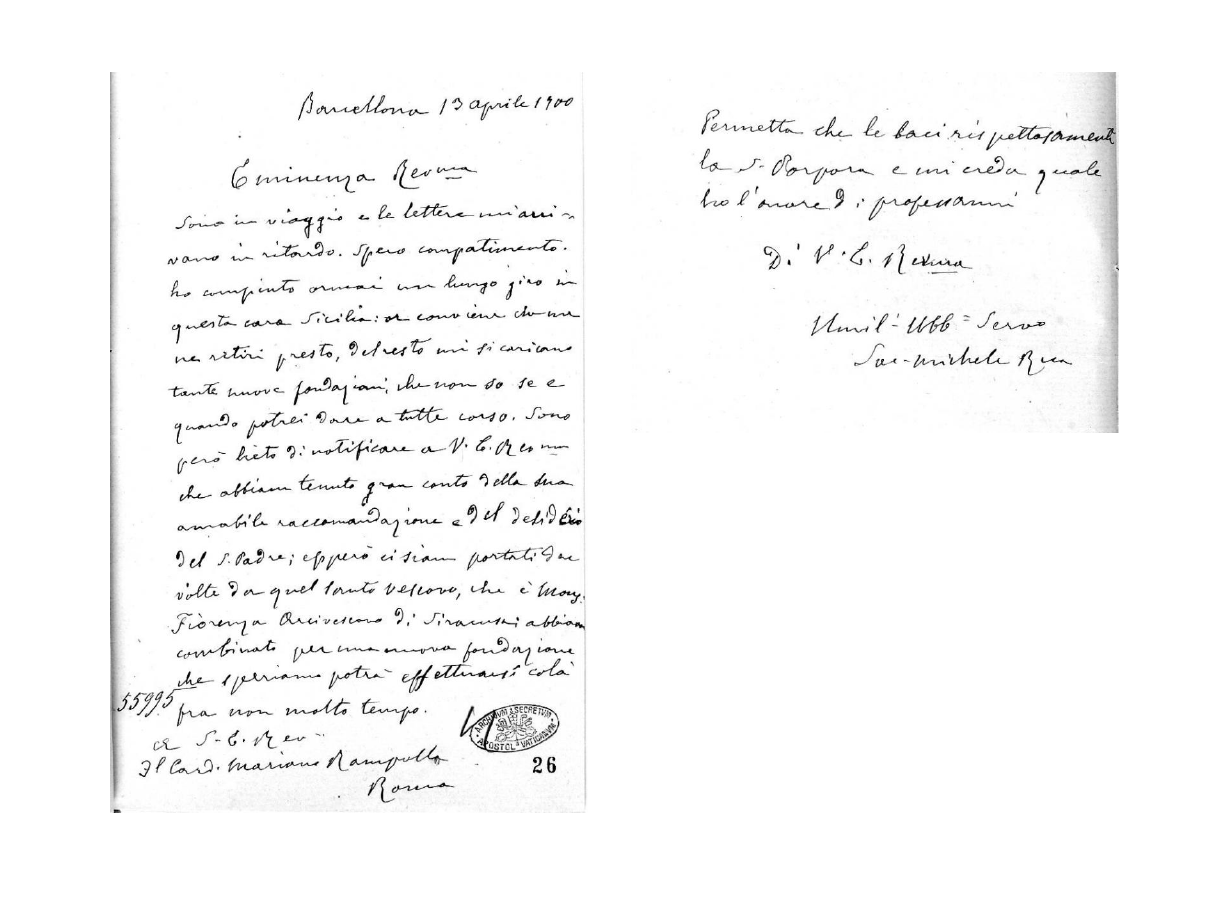 Barcellona 13 aprile 1900
Eminenza Revma
Sono in viaggio e le lettere mi arri-
vano in ritardo. Spero compatimento.
ho compiuto ormai un lungo giro in
questa cara Sicilia: or conviene che me
ne ritiri presto, del resto mi si caricano
tante nuove fondazioni, che non so se e
quando potrei dare a tutte corso. Sono
però lieto di notificare a V. E. Revma
che abbiam tenuto gran conto della sua
amabile raccomandazione e del desiderio
del S. Padre; epperò ci siam portati due
volte da quel santo vescovo, che è Mons.
Fiorenza Arcivescovo di Siracusa; abbiam
combinato per una nuova fondazione
che speriamo potrà effettuarsi colà
fra non molto tempo.
55995
A S. E. Rev
Il Card. Mariano Rampolla
Roma
ARCHIVUM SECRETVM APOSTOL. VATICANVM
26
Permetta che le baci rispettosamente
la S. Porpora e mi creda quale
ho l'onore di professarmi
Di V. E. Revma
Umil= Ubb= Servo
Sac. Michele Rua